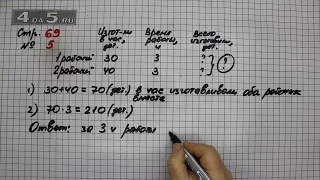 4DA5.RU
Стр. 69
№ 5
Изгот-ли в час, дет.
Время работы, ч
Всего изготовили, дет.
1 рабочий 30 3 ?
2 рабочий 40 3 ?
?
1) 30+40=70 (дет.) в час изготавливали оба рабочих вместе
2) 70·3=210 (дет.)
Ответ: за 3 ч работы